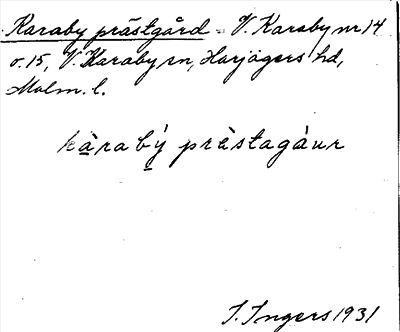 Karaby prästgård = V. Karaby nr 14
o. 15, V. Karaby sn, Harjagers hd,
Malm. l.
kàrabý prèstagàur
I. Ingers 1931